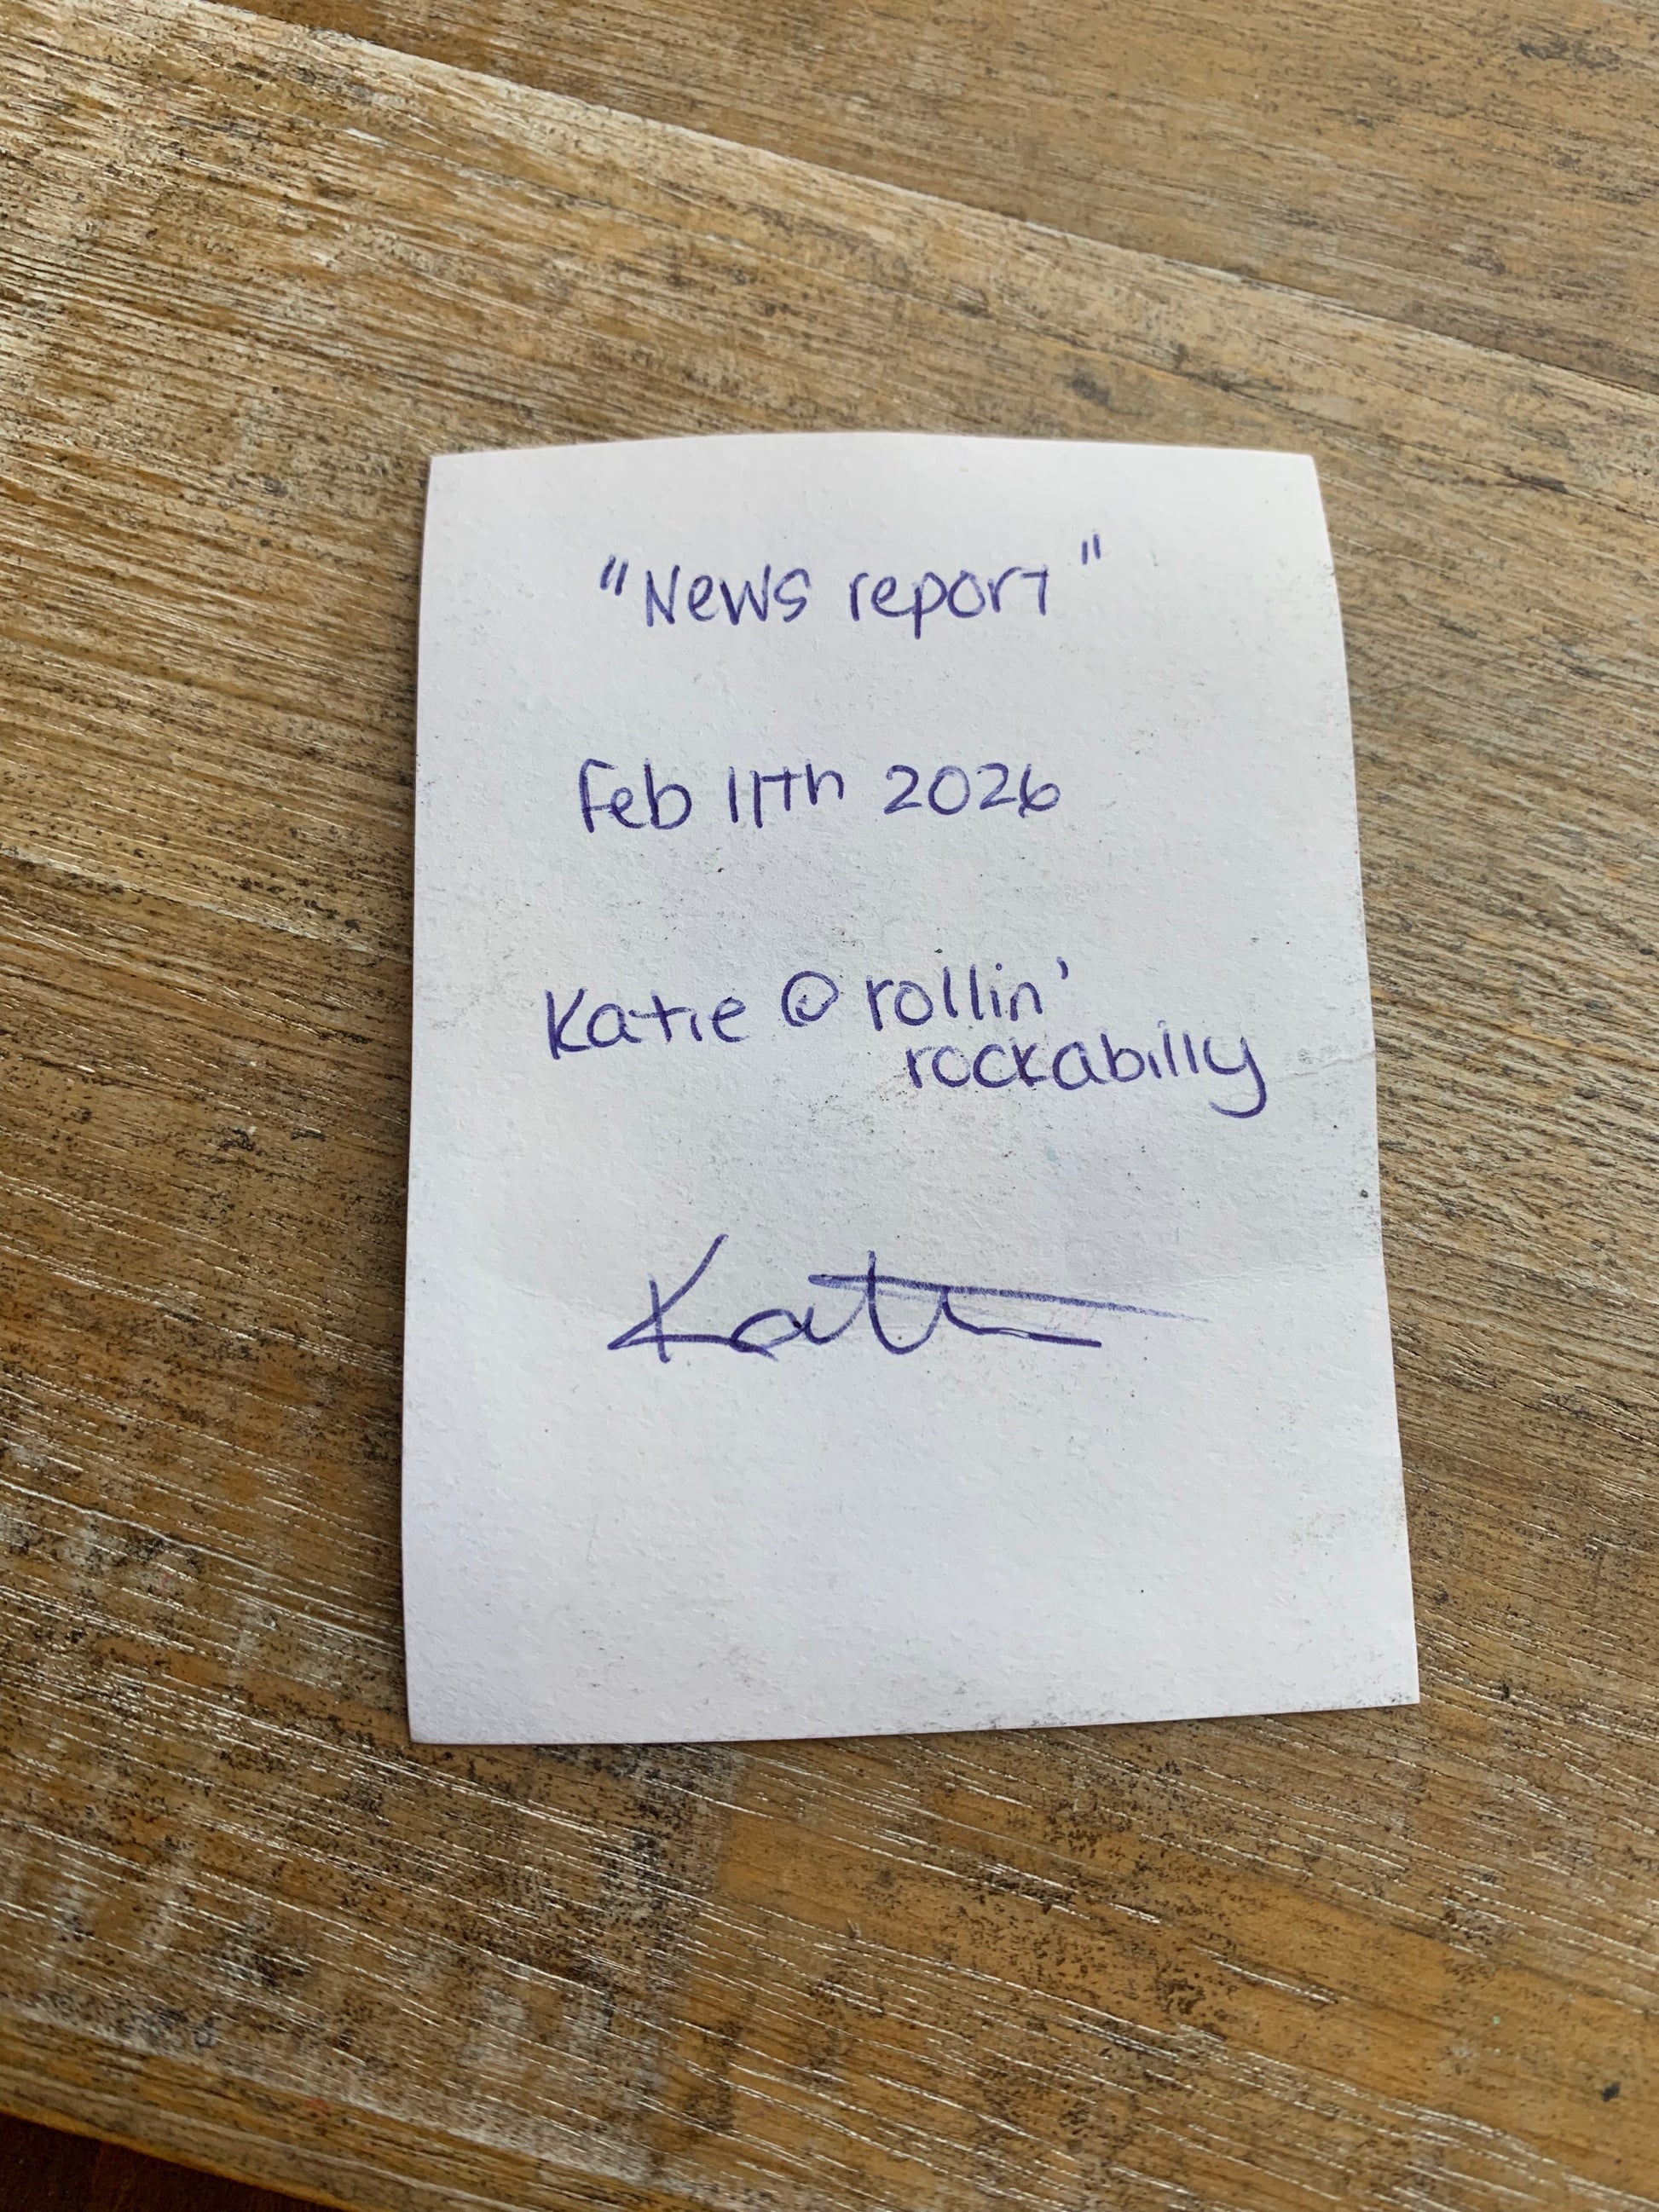 "News report"
Feb 11th 2026
Katie @ rollin'
rockabilly
Katie